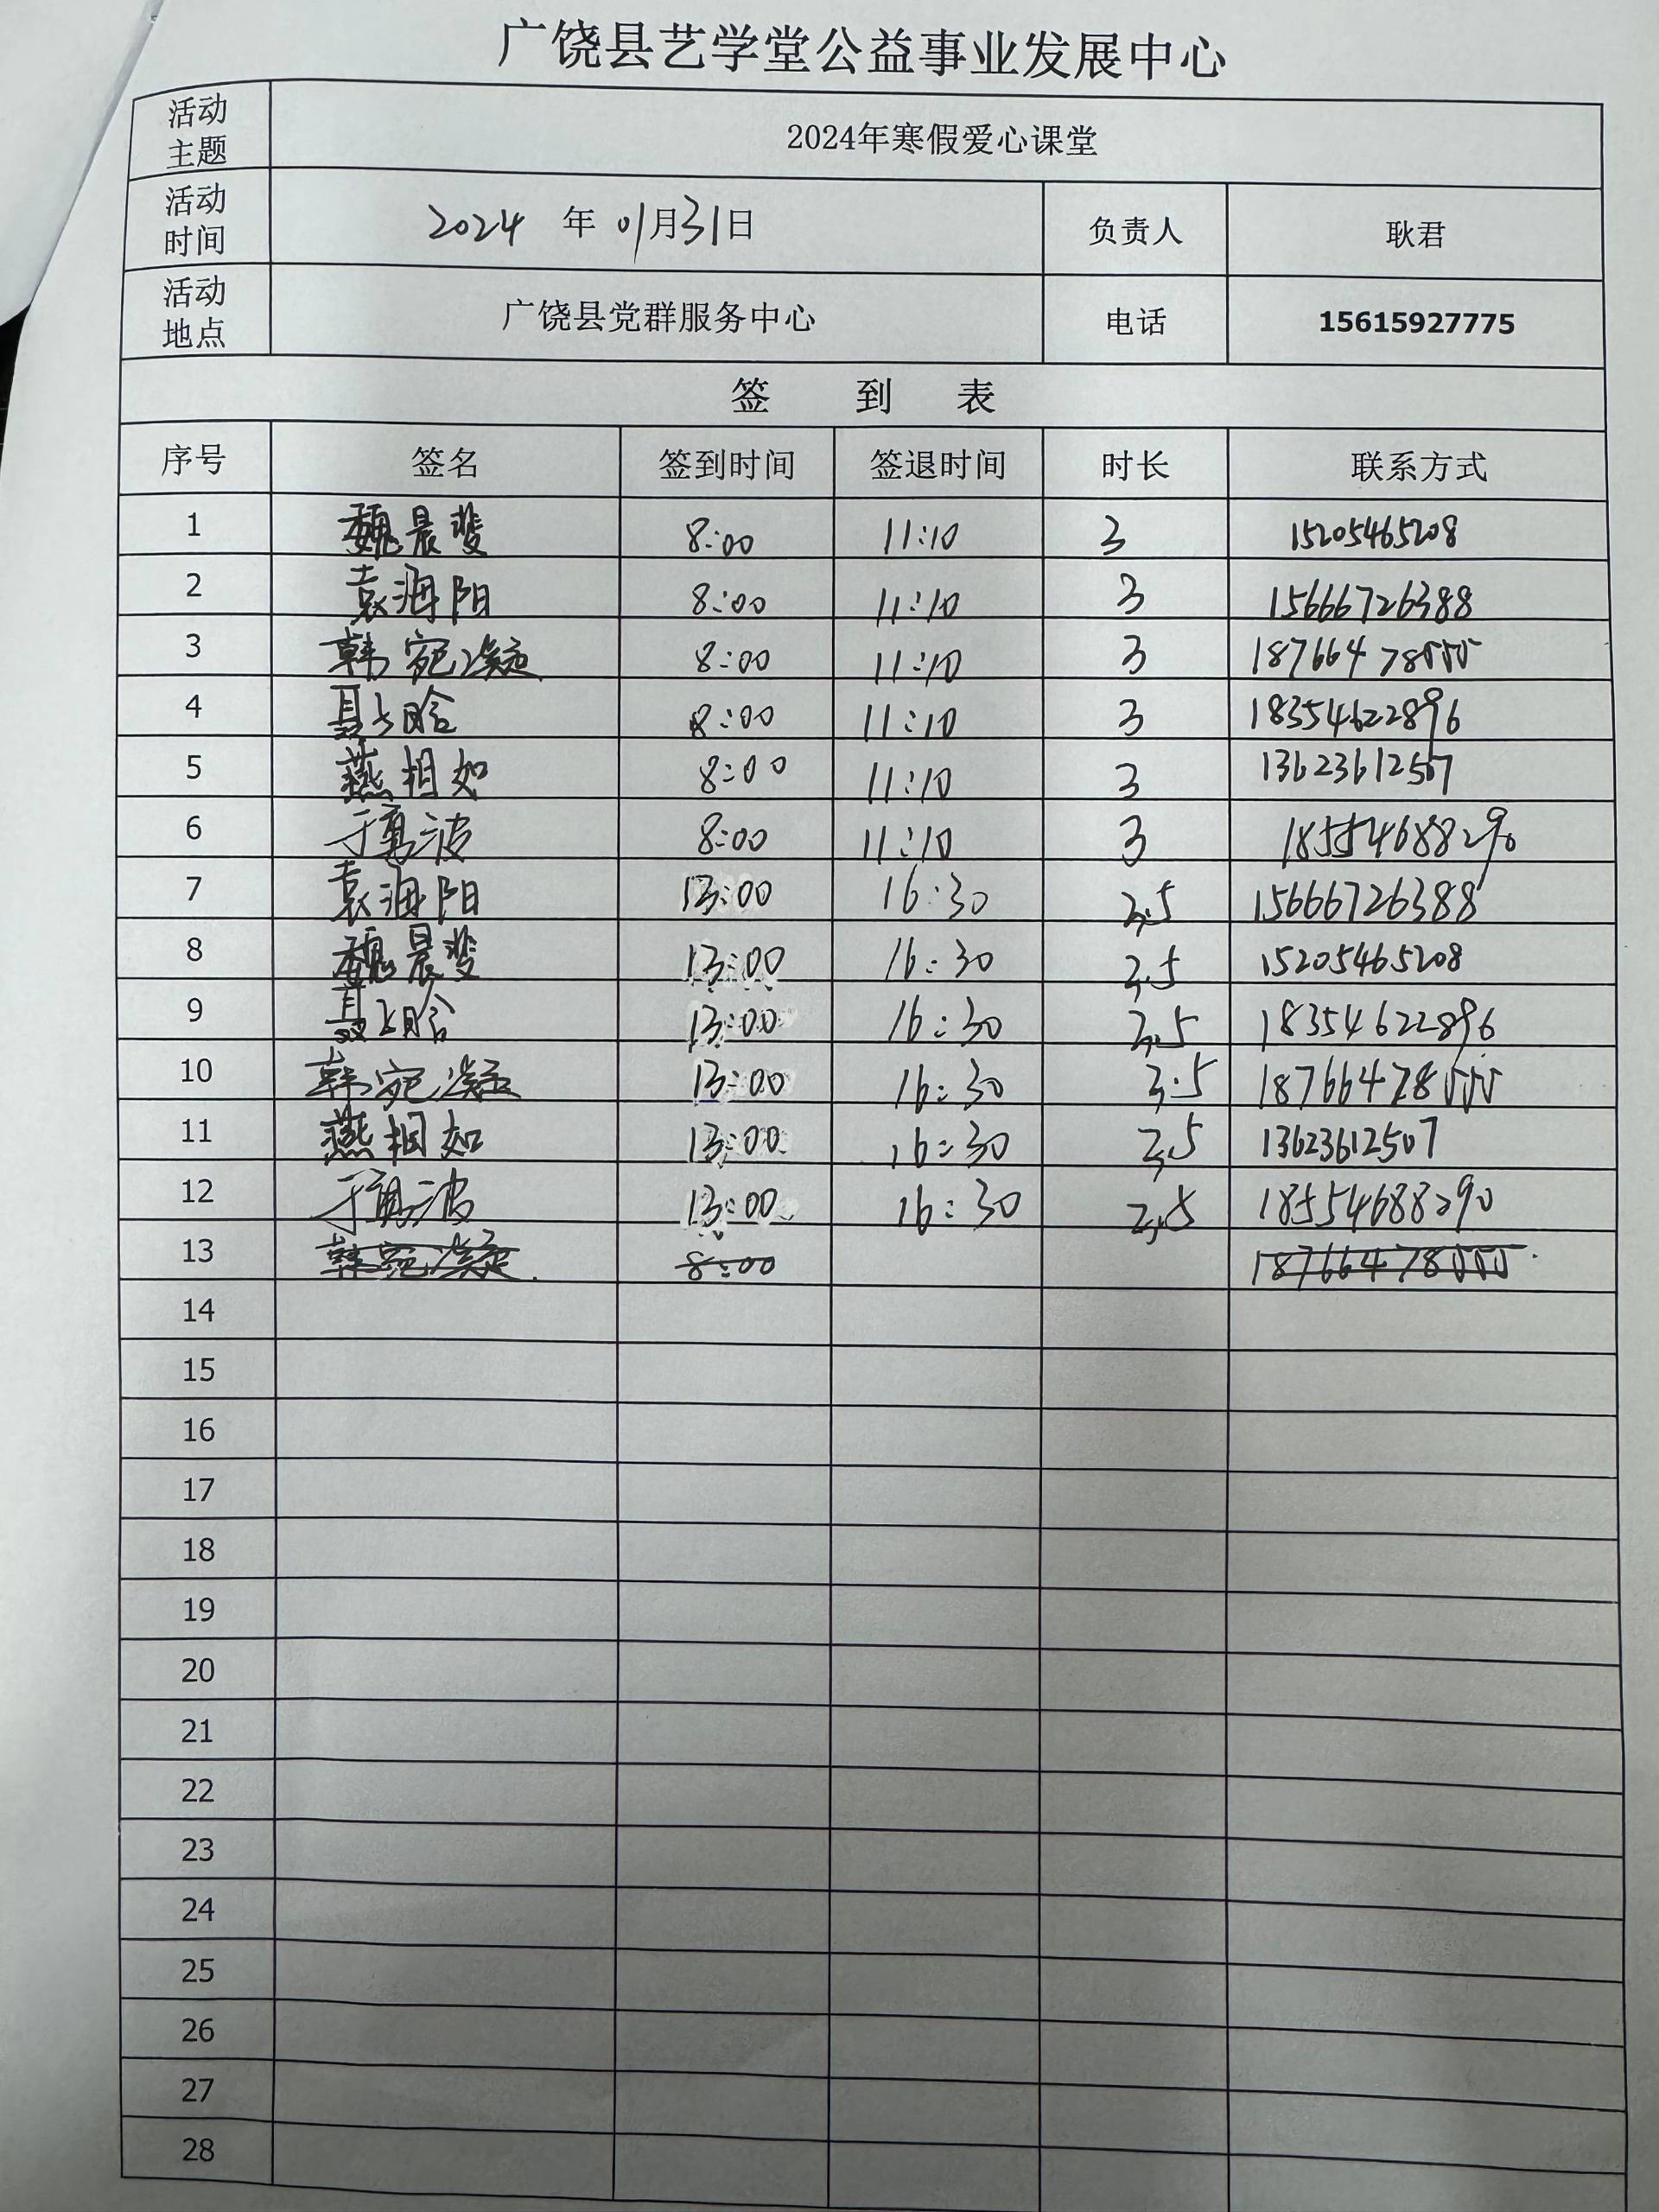 广饶县艺学堂公益事业发展中心
活动主题 2024年寒假爱心课堂
活动时间 2024 年 01月31日 负责人 耿君
活动地点 广饶县党群服务中心 电话 15615927775
签 到 表
序号 签名 签到时间 签退时间 时长 联系方式
1 魏晨斐 8:00 11:10 3 15205465208
2 袁海阳 8:00 11:10 3 15666726388
3 韩宛凝 8:00 11:10 3 18766478555
4 聂 晗 8:00 11:10 3 18354622896
5 燕相如 8:00 11:10 3 13623612507
6 于勇波 8:00 11:10 3 18554688290
7 袁海阳 13:00 16:30 3.5 15666726388
8 魏晨斐 13:00 16:30 3.5 15205465208
9 聂 晗 13:00 16:30 3.5 18354622896
10 韩宛凝 13:00 16:30 3.5 18766478555
11 燕相如 13:00 16:30 3.5 13623612507
12 于勇波 13:00 16:30 3.5 18554688290
13 韩宛凝 8:00 18766478555
14
15
16
17
18
19
20
21
22
23
24
25
26
27
28